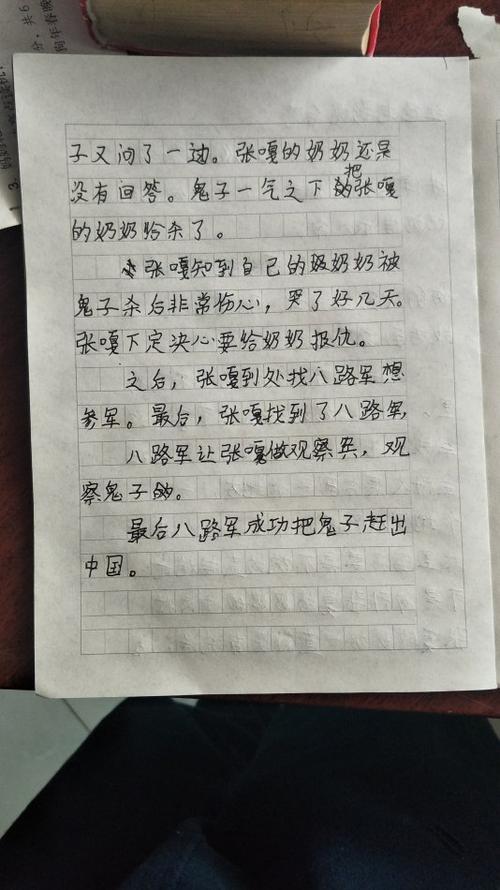 子又问了一边。张嘎的奶奶还是
没有回答。鬼子一气之下把张嘎
的奶奶给杀了。
张嘎知到自己的奶奶被
鬼子杀后非常伤心，哭了好几天。
张嘎下定决心要给奶奶报仇。
之后，张嘎到处找八路军想
参军。最后，张嘎找到了八路军，
八路军让张嘎做观察兵，观
察鬼子的。
最后八路军成功把鬼子赶出
中国。